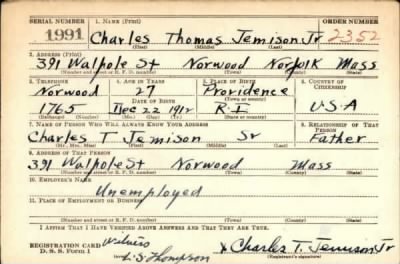 SERIAL NUMBER 1. NAME (Print) ORDER NUMBER
1991 Charles Thomas Jemison Jr 2352
(First) (Middle) (Last)
2. ADDRESS (Print)
391 Walpole St Norwood Norfolk Mass
(Number and street or R. F. D. number) (Town) (County) (State)
3. TELEPHONE 4. AGE IN YEARS 5. PLACE OF BIRTH 6. COUNTRY OF CITIZENSHIP
Norwood 27 Providence
DATE OF BIRTH (Town or county)
1765 Dec 22 1912 R I U-S-A
(Exchange) (Number) (Mo.) (Day) (Yr.) (State or country)
7. NAME OF PERSON WHO WILL ALWAYS KNOW YOUR ADDRESS 8. RELATIONSHIP OF THAT PERSON
Charles T Jemison Sr Father
(Mr., Mrs., Miss) (First) (Middle) (Last)
9. ADDRESS OF THAT PERSON
391 Walpole St Norwood Mass
(Number and street or R. F. D. number) (Town) (County) (State)
10. EMPLOYER'S NAME
Unemployed
11. PLACE OF EMPLOYMENT OR BUSINESS
(Number and street or R. F. D. number) (Town) (County) (State)
I AFFIRM THAT I HAVE VERIFIED ABOVE ANSWERS AND THAT THEY ARE TRUE.
REGISTRATION CARD witness x Charles T. Jemison Jr
D. S. S. Form 1 Thompson (Registrant's signature)